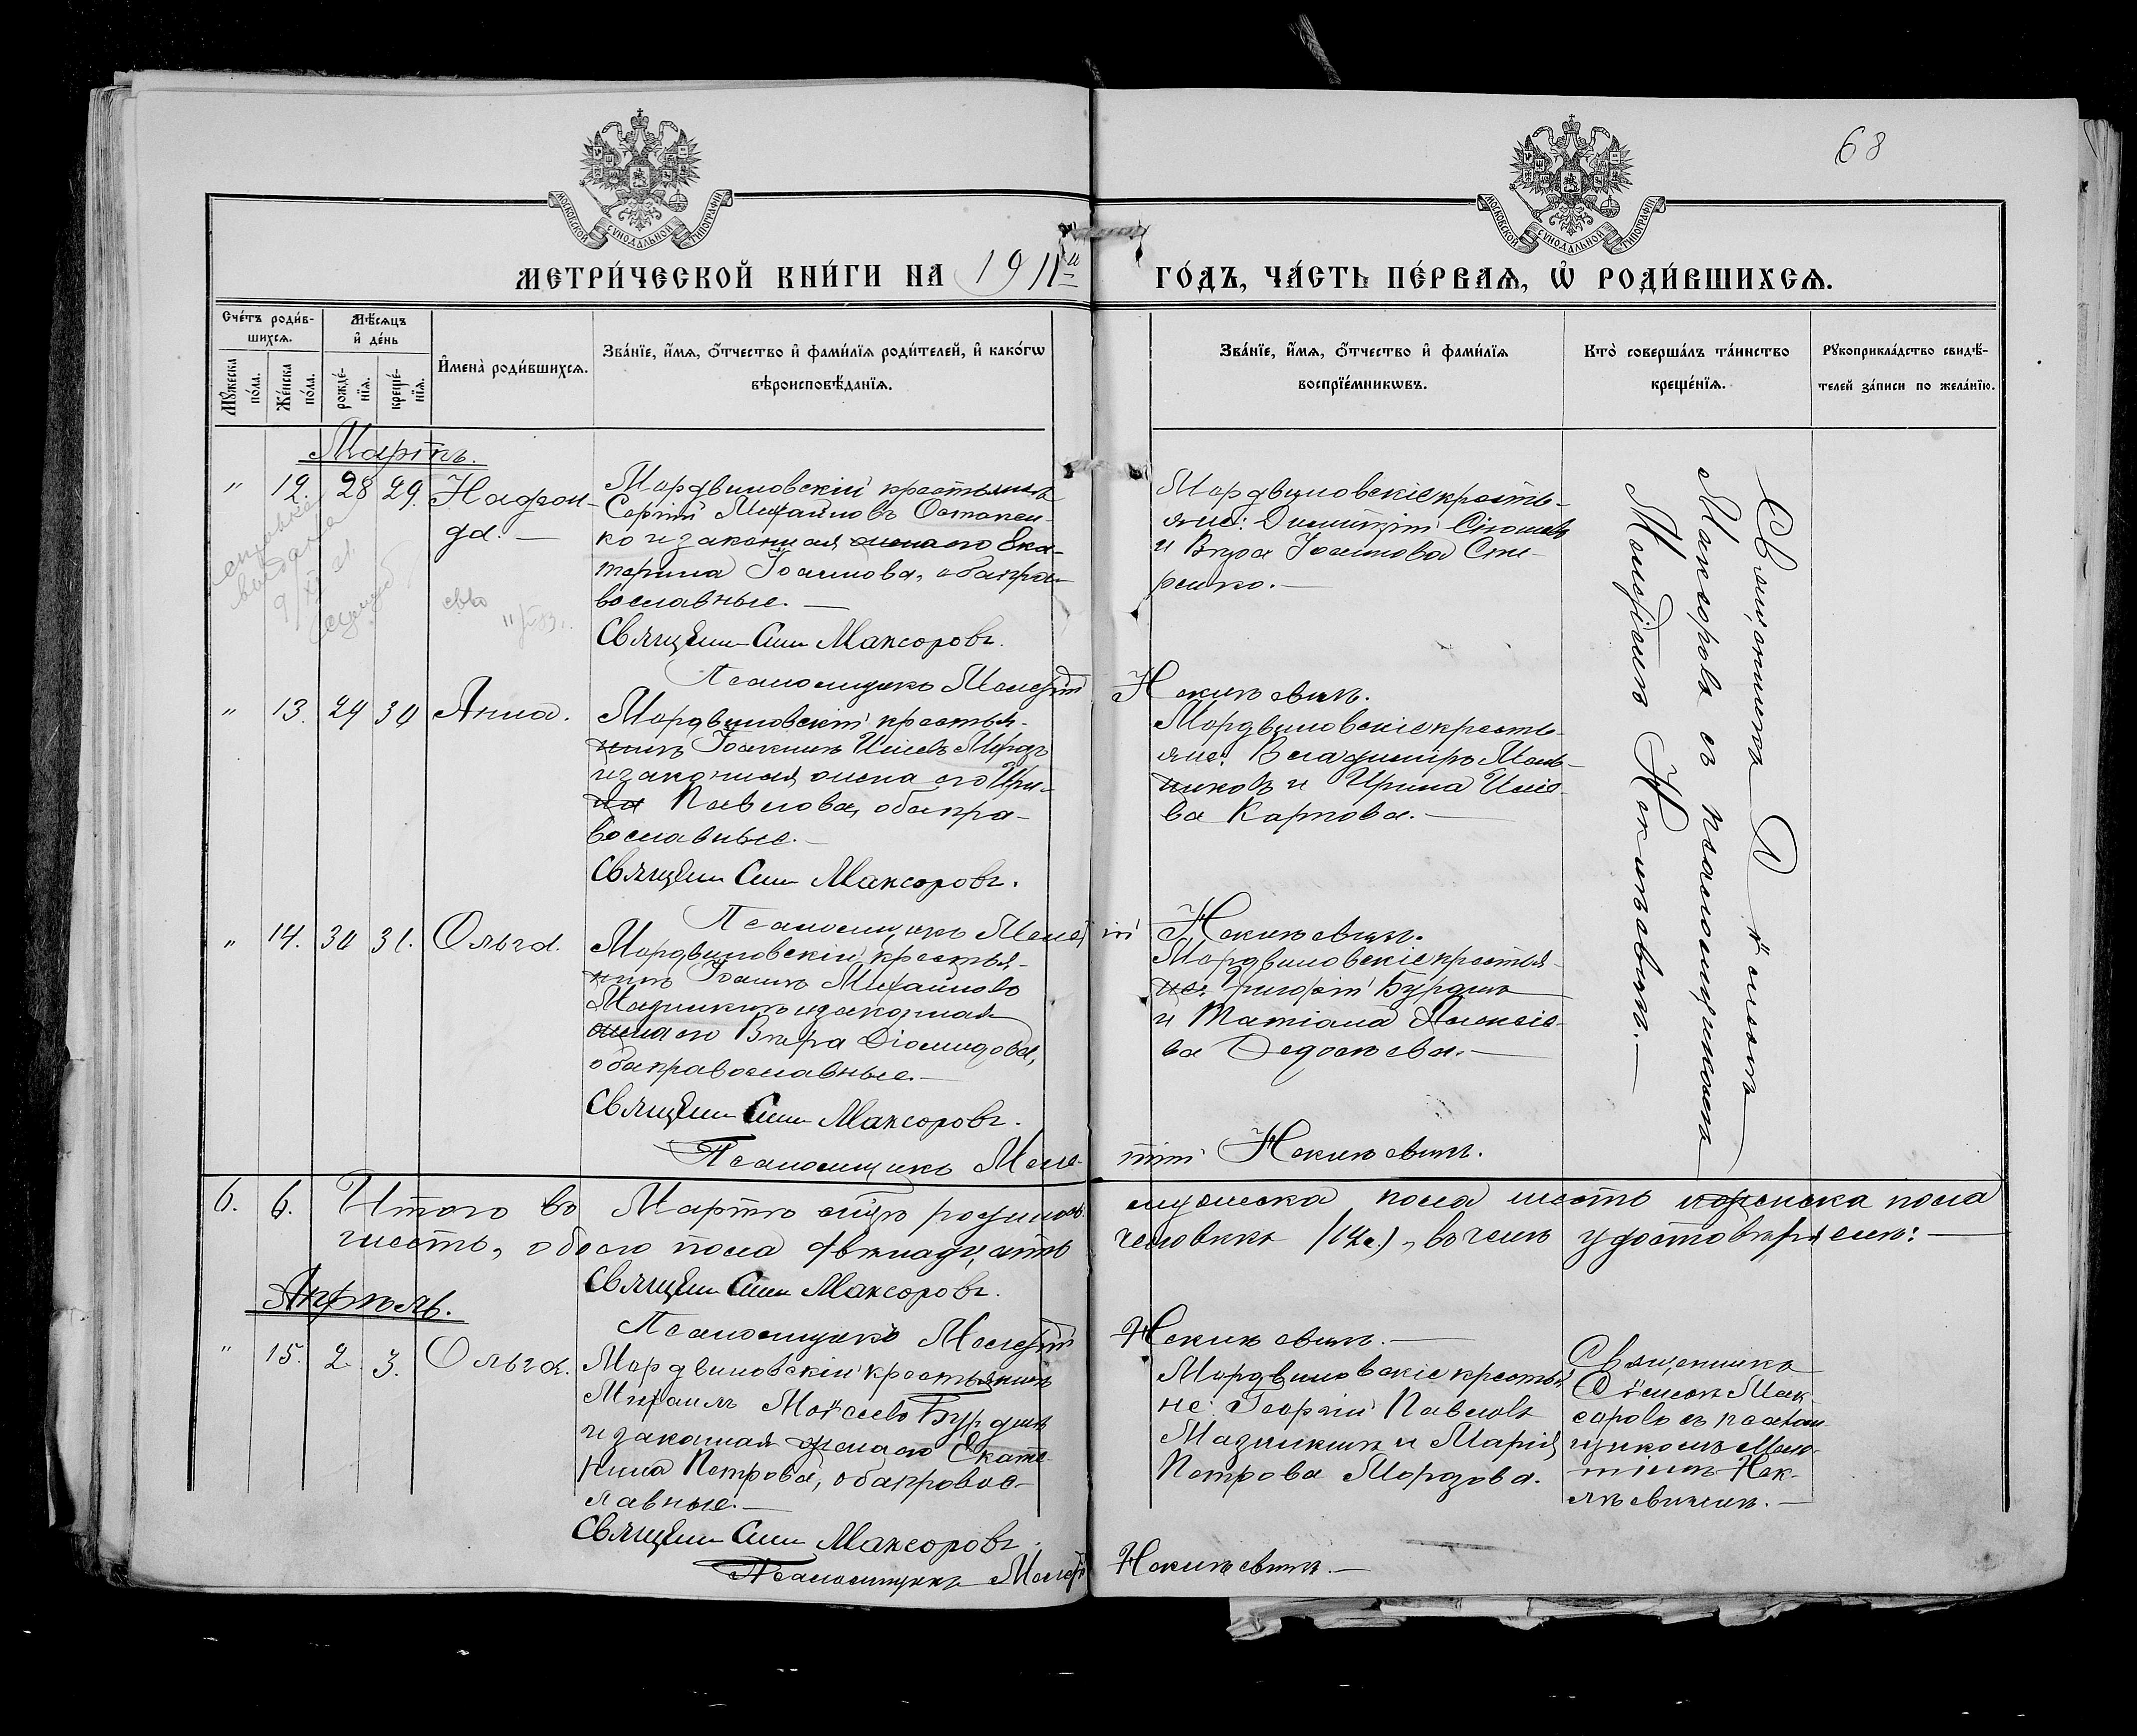 68
МОСКОВСКОЙ СѴНОДАЛЬНОЙ ТИПОГРАФІИ
МОСКОВСКОЙ СѴНОДАЛЬНОЙ ТИПОГРАФІИ
МЕТРИ́ЧЕСКОЙ КНИ́ГИ НА 1911й
ГО́ДЪ, ЧА́СТЬ ПЕ́РВАѦ, Ѡ҆ РОДИ́ВШИХСѦ.
Сче́тъ роди́в-
шихсѧ.
Мꙋжеска по́ла.
Же́нска по́ла.
Мѣ́сѧцъ
и҆ де́нь
рожде́-
нїѧ.
креще́-
нїѧ.
И҆мена̀ роди́вшихсѧ.
Зва́нїе, и҆́мѧ, ѻ҆́тчество и҆ фами́лїѧ роди́телей, и҆ како́гѡ
вѣроисповѣ́данїѧ.
Зва́нїе, и҆́мѧ, ѻ҆́тчество и҆ фами́лїѧ
воспрїе́мникѡвъ.
Кто̀ соверша́лъ та́инство
креще́нїѧ.
Рꙋкоприкла́дство свидѣ́-
телей за́писи по жела́нїю.
Мартъ.
" 12. 28 29. Надеж-
да. —
Мордвиновскій крестьянинъ
Сергій Михайловъ Остапен-
ко и законная жена его Ека-
терина Іоаннова, оба пра-
вославные. —
Священ Сим Максоровъ.
Псаломщикъ Мелетій Некикевичъ.
Мордвиновскіе кресть-
яне: Димитрій
и Вера Іоаннова Сти-
ренко. —
Священникъ Сѵмеонъ
Максоровъ съ псаломщикомъ
Мелетіемъ Некикевичемъ. —
" 13. 29 30 Анна.
Мордвиновскій крестья-
нинъ Іоакимъ Ильевъ
и законная жена его Ири-
на Павлова, оба пра-
вославные. —
Священ Сим Максоровъ.
Псаломщикъ Мелетій Некикевичъ.
Мордвиновскіе кресть-
яне: Владимиръ Мель-
никовъ и Ирина Ильё-
ва Карпова. —
" 14. 30 31. Ольга.
Мордвиновскій крестья-
нинъ Іоаннъ Михайловъ
Мазикинъ и законная
жена его Вера Діомидова,
оба православные. —
Священ Сим Максоровъ.
Псаломщикъ Мелетій Некикевичъ.
Мордвиновскіе крестья-
не: Григорій Бурдинъ
и Татіана Алексіе-
ва Федосѣева. —
6. 6. Итого въ Мартѣ м-цѣ родилось мужеска пола шесть женска пола
шесть, обоего пола двѣнадцать человѣкъ /12 ч.), въ чемъ удостовѣряемъ: —
Священ Сим Максоровъ.
Псаломщикъ Мелетій Некикевичъ. —
Апрѣль.
" 15. 2. 3. Ольга.
Мордвиновскій крестьянинъ
Михаилъ Моѵсеевъ Бурдинъ
и законная жена его Екате-
рина Петрова, оба правос-
лавные. —
Священ Сим Максоровъ.
Псаломщикъ Мелетій Некикевичъ. —
Мордвиновскіе крестья-
не: Георгій Павловъ
Мазикинъ и Марія
Петрова Мордова.
Священникъ
Сѵмеонъ Мак-
соровъ съ псалом-
щикомъ Меле-
тіемъ Нек-
икевичемъ. —